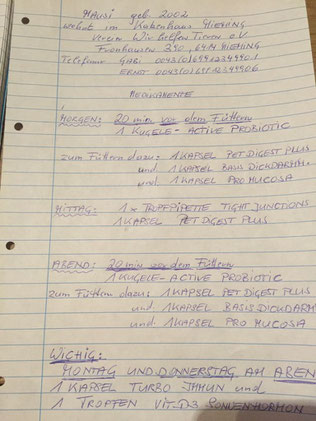 MAUSI geb. 2002
wohnt im Katzenhaus MIEMING
Verein Wir helfen Tieren e.V.
Fronhausen 290, 6414 MIEMING
Telefonnr GABI
ERNST
MEDIKAMENTE
MORGEN: 20 min vor dem Füttern
1 KUGELE - ACTIVE PROBIOTIC
zum Füttern dazu: 1 KAPSEL PET DIGEST PLUS
und 1 KAPSEL BASIS DICKDARM
und 1 KAPSEL PRO MUCOSA
MITTAG: 1x TROPFPIPETTE TIGHT JUNCTIONS
1 KAPSEL PET DIGEST PLUS
ABEND: 20 min vor dem Füttern
1 KUGELE - ACTIVE PROBIOTIC
zum Füttern dazu: 1 KAPSEL PET DIGEST PLUS
und 1 KAPSEL BASIS DICKDARM
und 1 KAPSEL PRO MUCOSA
WICHIG:
MONTAG UND DONNERSTAG AM AREN
1 KAPSEL TURBO IMMUN und
1 TROPFEN VIT-D3 SONNENHORMON